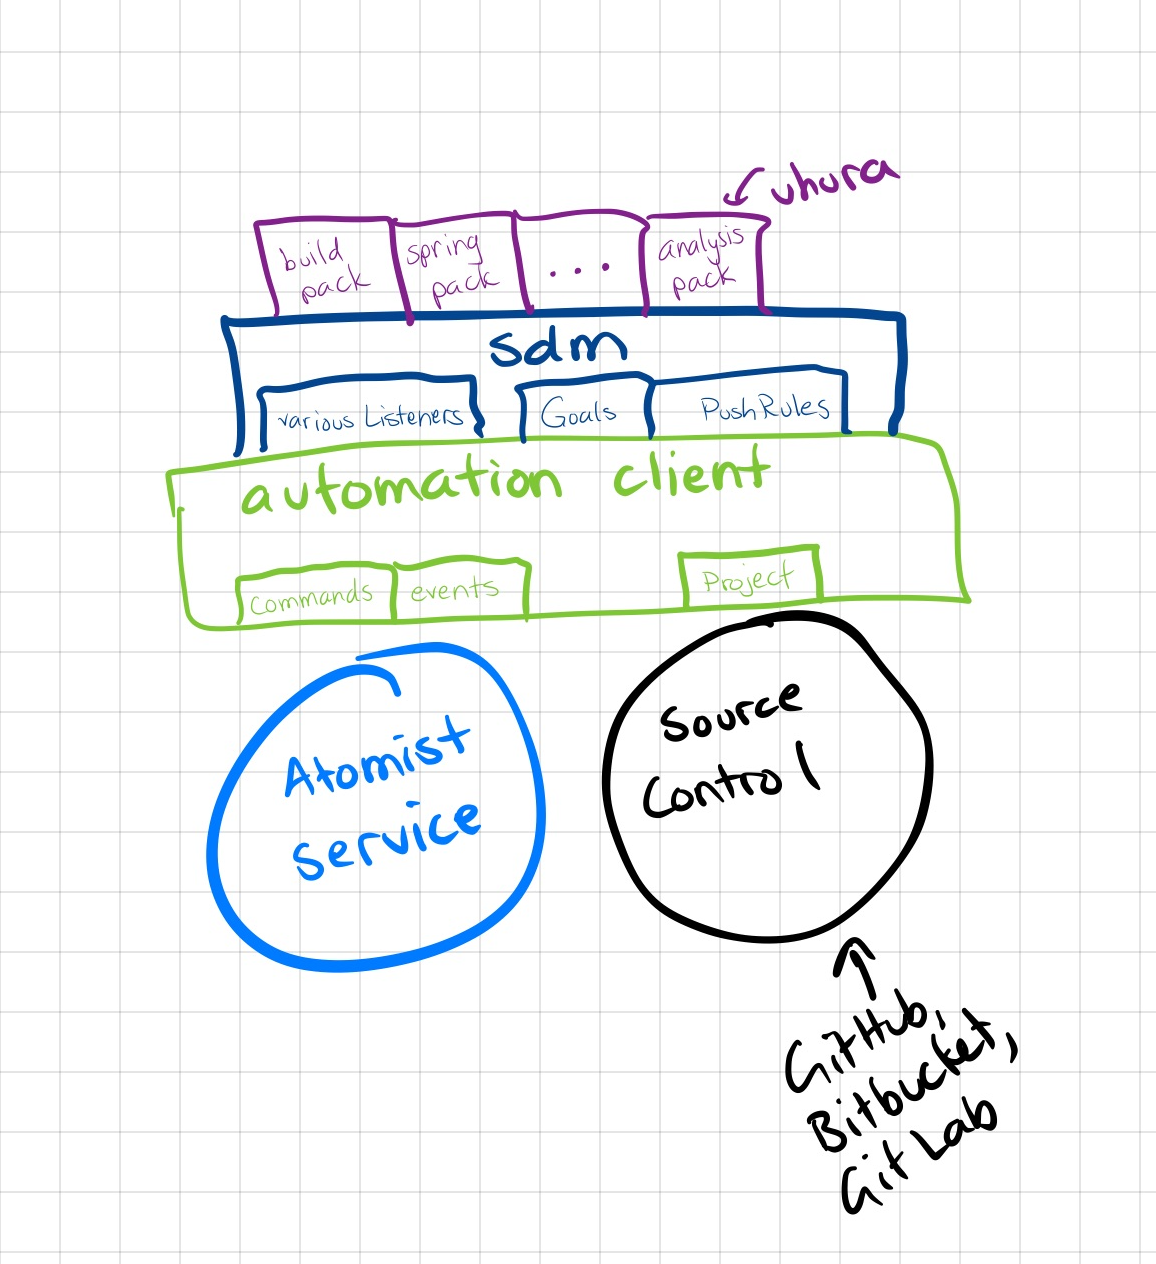 uhura
build
pack
spring
pack
...
analysis
pack
sdm
various Listeners
Goals
PushRules
automation client
Commands
events
Project
Atomist
service
Source
Control
GitHub,
Bitbucket,
GitLab